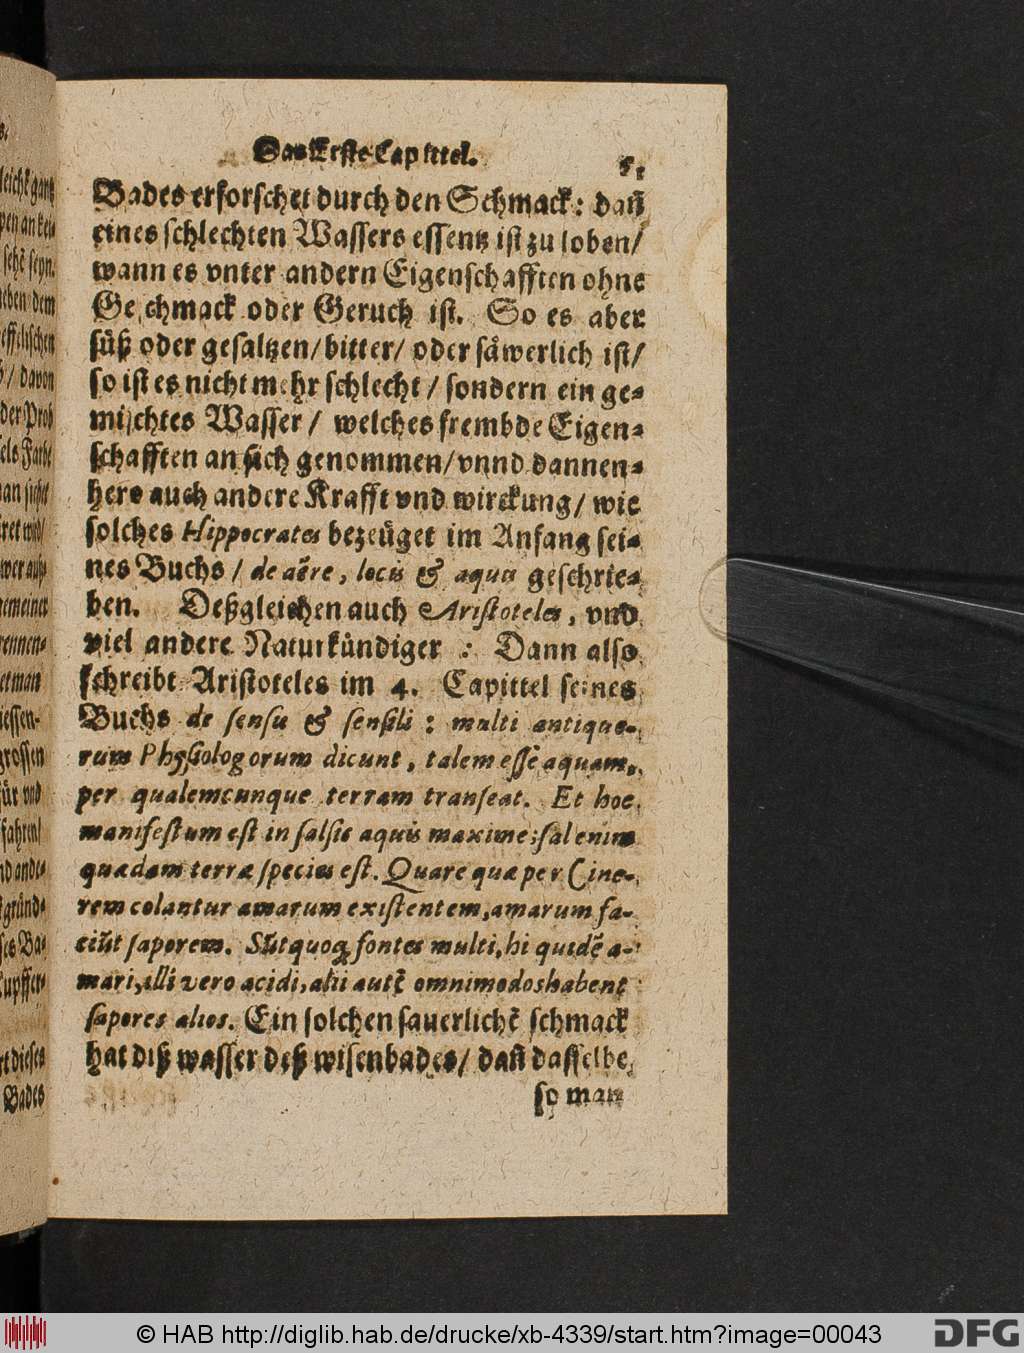 Das Erste Capittel.
Bades erforschet durch den Schmack: dañ
eines schlechten Wassers essentz ist zu loben/
wann es vnter andern Eigenschafften ohne
Geschmack oder Geruch ist. So es aber
süß oder gesaltzen/bitter/ oder säwerlich ist/
so ist es nicht mehr schlecht / sondern ein ge-
mischtes Wasser / welches frembde Eigen-
schafften an sich genommen/vnnd dannen-
hero auch andere Krafft vnd wirckung/ wie
solches Hippocrates bezeüget im Anfang sei-
nes Buchs / de aëre, locis & aquis geschrie-
ben. Deßgleichen auch Aristoteles, vnd
viel andere Naturkündiger : Dann also
schreibt Aristoteles im 4. Capittel seines
Buchs de sensu & sensili : multi antiquo-
rum Physiologorum dicunt, talem esse aquam,
per qualemcunque terram transeat. Et hoc
manifestum est in salsis aquis maxime; sal enim
quædam terræ species est. Quare quæ per Cine-
rem colantur amarum existentem, amarum fa-
ciũt saporem. Sũt quoq; fontes multi, hi quidẽ a-
mari, illi vero acidi, alii autẽ omnimodos habent
sapores alios. Ein solchen sauerlichẽ schmack
hat diß wasser deß wisenbades/ dañ dasselbe
so man
leicht gantz
pen an kei-
sehẽ seyn.
eben dem
/ davon
der Prob
els Farbe
man sichet
gemeiner
rennen-
et man
iessen-
grossen
für vnd
fahren/
nd ande-
gründ-
ses Ba-
kupffer-
rt dieses
Bades
© HAB http://diglib.hab.de/drucke/xb-4339/start.htm?image=00043
DFG